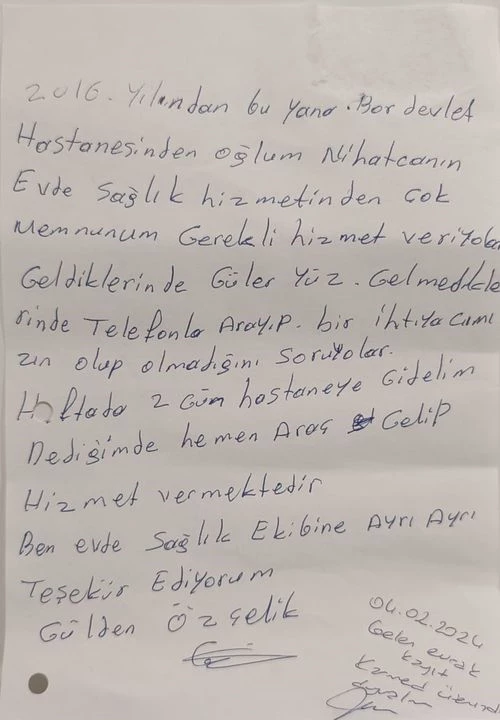 2016. Yılından bu yana. Bor devlet
Hastanesinden oğlum Nihatcanın
Evde Sağlık hizmetinden çok
Memnunum Gerekli hizmet veriyola
Geldiklerinde Güler Yüz. Gelmedikle
rinde Telefonla Arayıp. bir ihtiyacımı
zın olup olmadığını soruyolar.
Haftada 2 Gün hastaneye Gidelim
Dediğimde hemen Araç Gelip
Hizmet vermektedir
Ben evde Sağlık Ekibine Ayrı Ayrı
Teşekür Ediyorum
Gülden Özçelik
04.02.2024
Gelen evrak
kayıt